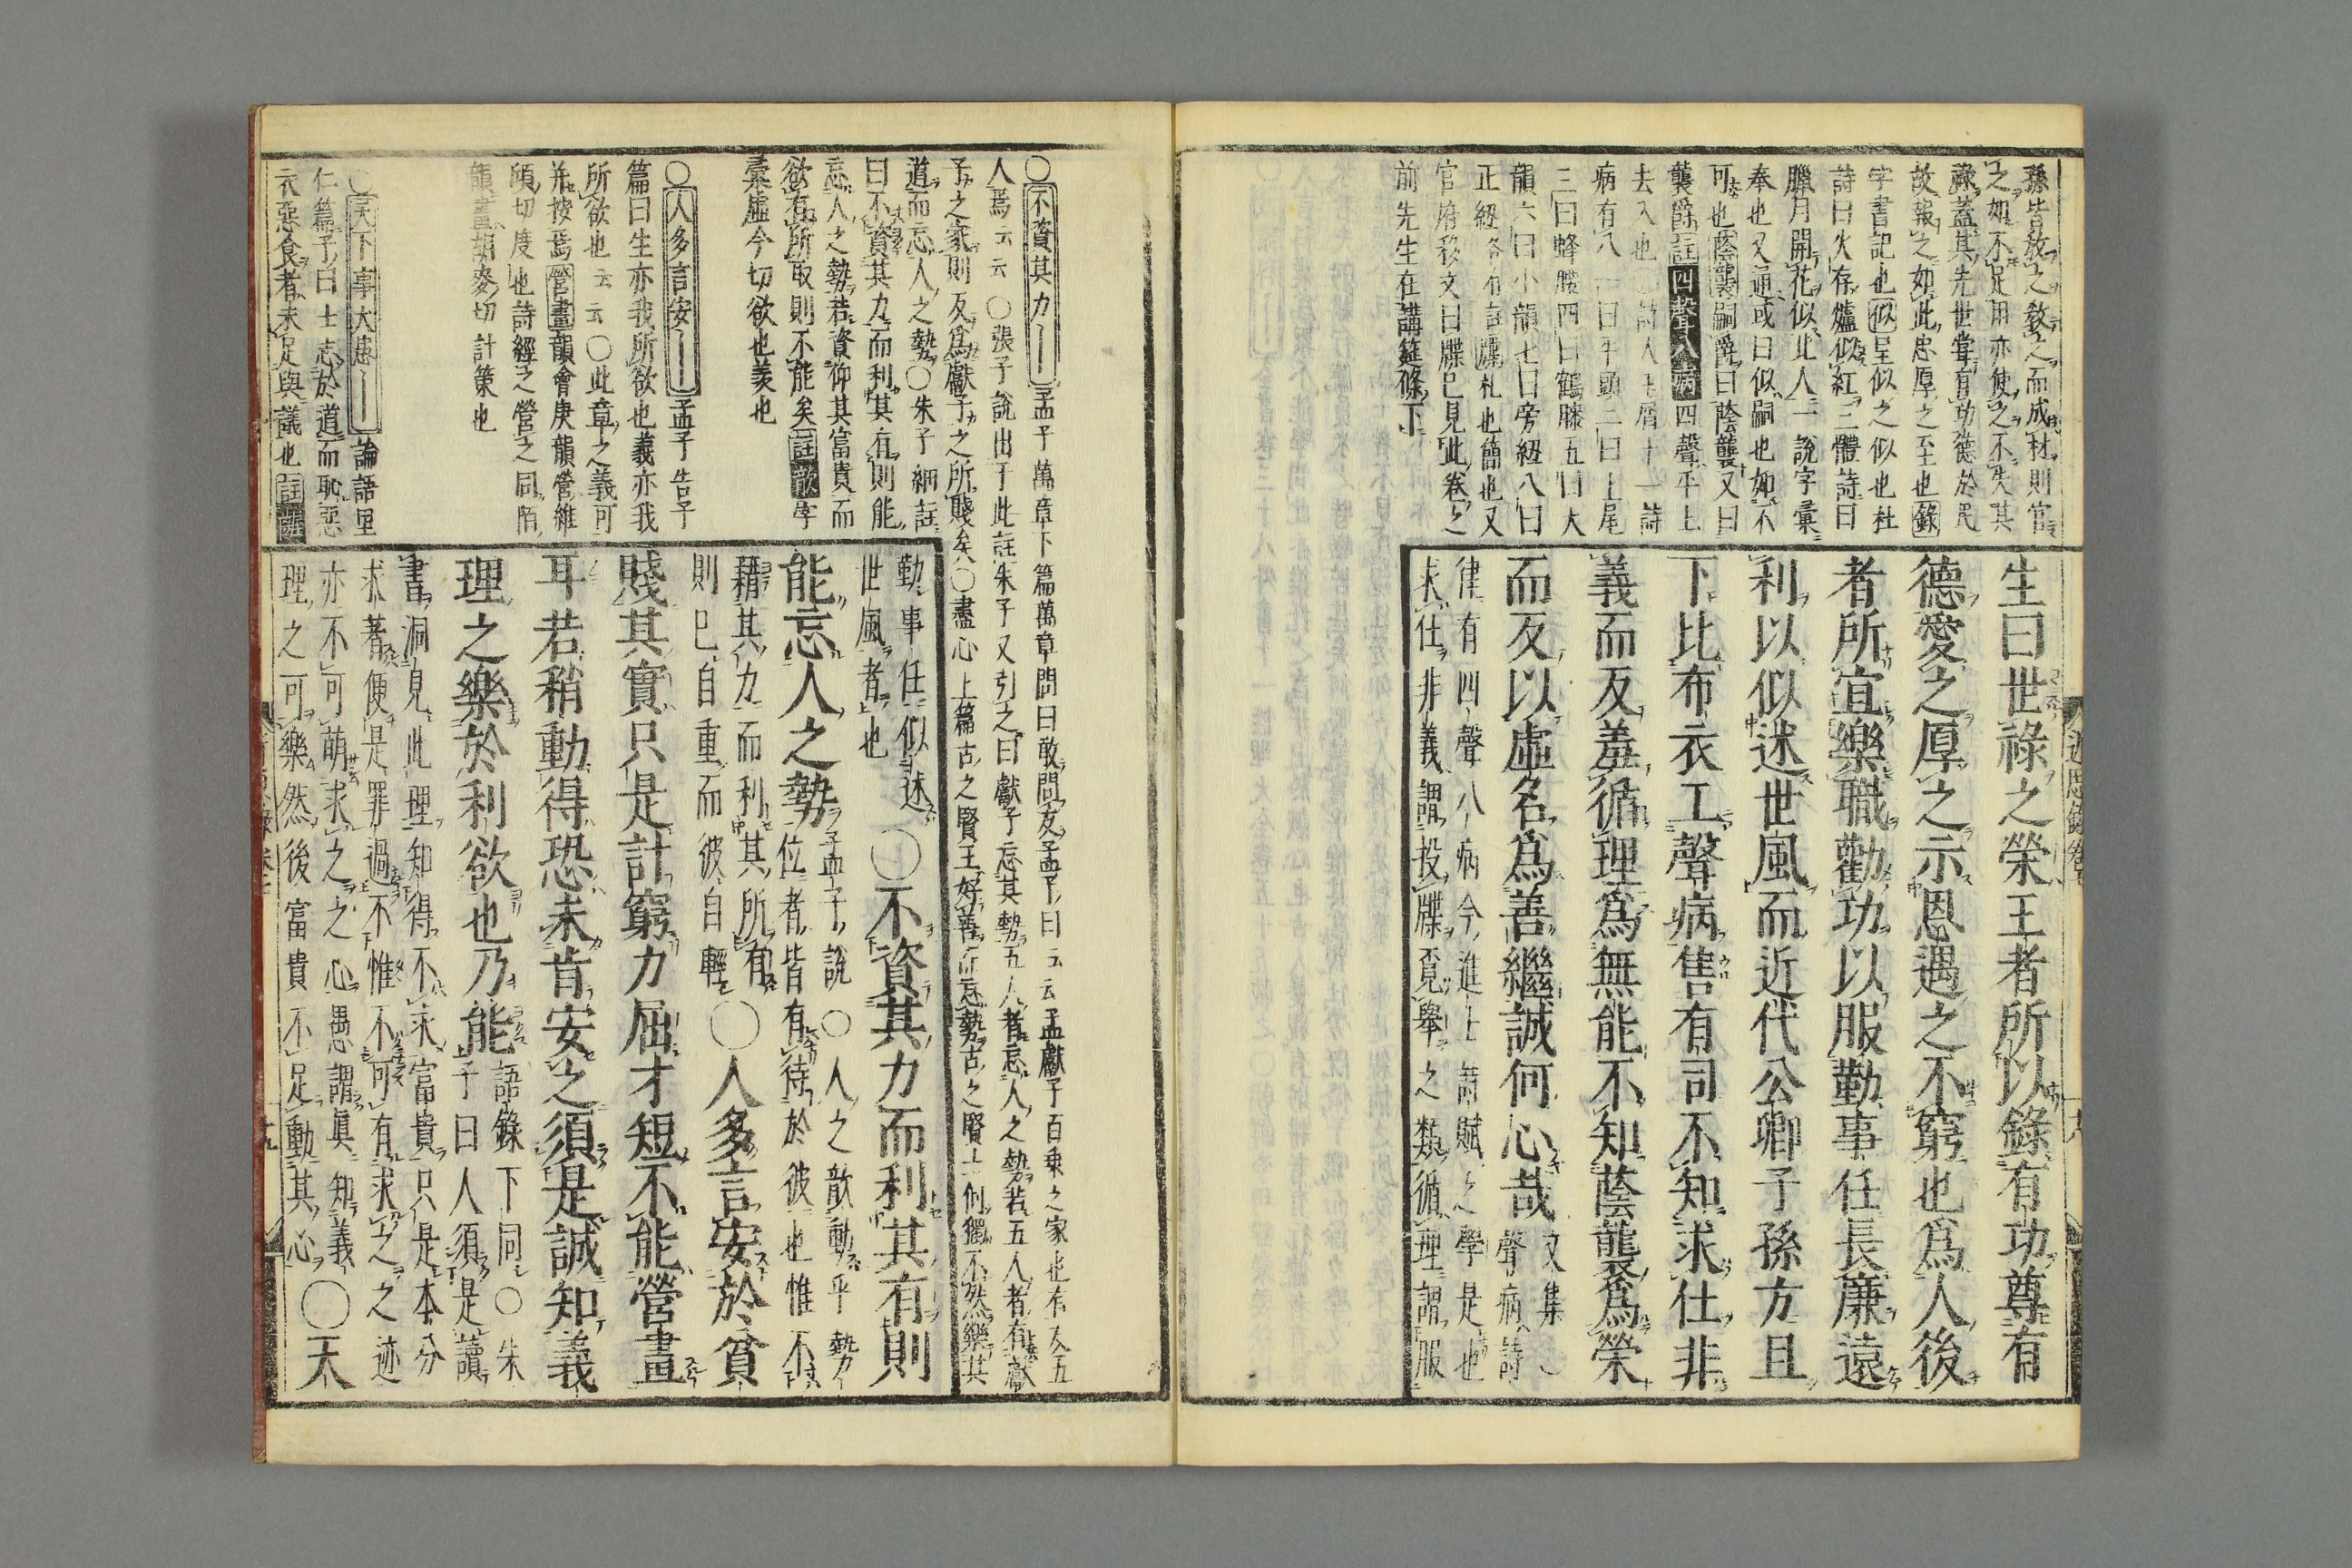 孫皆敎之敎之而成材則官
之如不足用亦使之不失其
祿蓋其先世嘗有功德於民
故報之如此忠厚之至也錄
字書記也似呈似之似也杜
詩曰火存爐似紅三體詩曰
臘月開花似北人一說字彙
奉也又通或曰似嗣也如不
可也蔭襲嗣爵曰蔭襲又曰
襲爵註四聲八病四聲平上
去入也〇詩人玉屑十一詩
病有八一曰平頭二曰上尾
三曰蜂腰四曰鶴膝五曰大
韻六曰小韻七曰旁紐八曰
正紐各有註牒札也簡也又
官府移文曰牒已見此卷之
前先生在講筵條下
生曰世祿之榮王者所以錄有功尊有
德愛之厚之示恩遇之不窮也爲人後
者所宜樂職勸功以服勤事任長廉遠
利以似述世風而近代公卿子孫方且
下比布衣工聲病售有司不知求仕非
義而反羞循理爲無能不知蔭襲爲榮
而反以虛名爲善繼誠何心哉 文集〇聲病詩
律有四聲八病今進士詩賦之學是也
求仕非義謂投牒覓擧之類循理謂服
〇不資其力 孟子萬章下篇萬章問曰敢問友孟子曰云云孟獻子百乘之家也有友五
人焉云云〇張子說出于此註朱子又引之曰獻子忘其勢五人者忘人之勢若五人者有獻
子之家則反爲獻子之所賤矣〇盡心上篇古之賢王好善而忘勢古之賢士何獨不然樂其
道而忘人之勢〇朱子細註
曰不資其力而利其有則能
忘人之勢若資仰其富貴而
欲有所取則不能矣註歆字
彙虛今切欲也羨也
〇人多言安 孟子告子
篇曰生亦我所欲也義亦我
所欲也云云〇此章之義可
幷按焉營畫韻會庚韻營維
頃切度也詩經之營之同陌
韻畫胡麥切計策也
〇天下事大患 論語里
仁篇子曰士志於道而恥惡
衣惡食者未足與議也註
勤事任似述
世風者也
〇不資其力而利其有則
能忘人之勢 孟子說〇人之歆動乎勢
位者皆有待於彼也惟不
藉其力而利其所有
則已自重而彼自輕
〇人多言安於貧
賤其實只是計窮力屈才短不能營畫
耳若稍動得恐未肯安之須是誠知義
理之樂於利欲也乃能 語錄下同〇朱
子曰人須是讀
書洞見此理知得不求富貴只是本分
求著便是罪過不惟不可有求之之迹
亦不可萌求之之心愚謂眞知義
理之可樂然後富貴不足動其心〇天